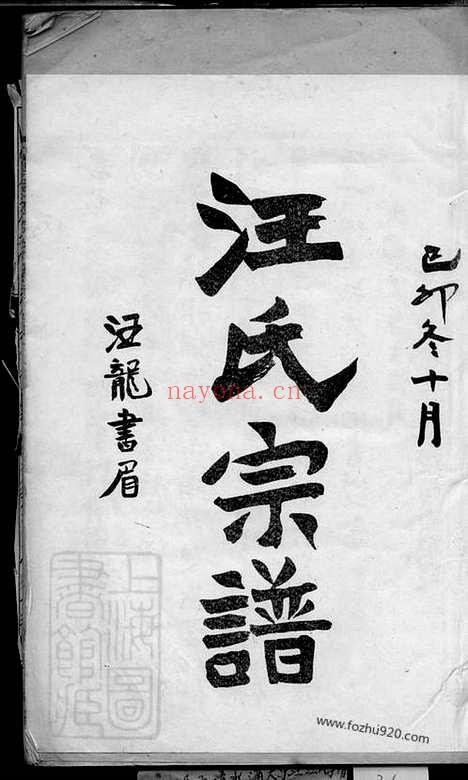 己卯冬十月
汪氏宗譜
汪龍書眉
上海圖
書館藏
nayona.cn
www.fozhu920.com